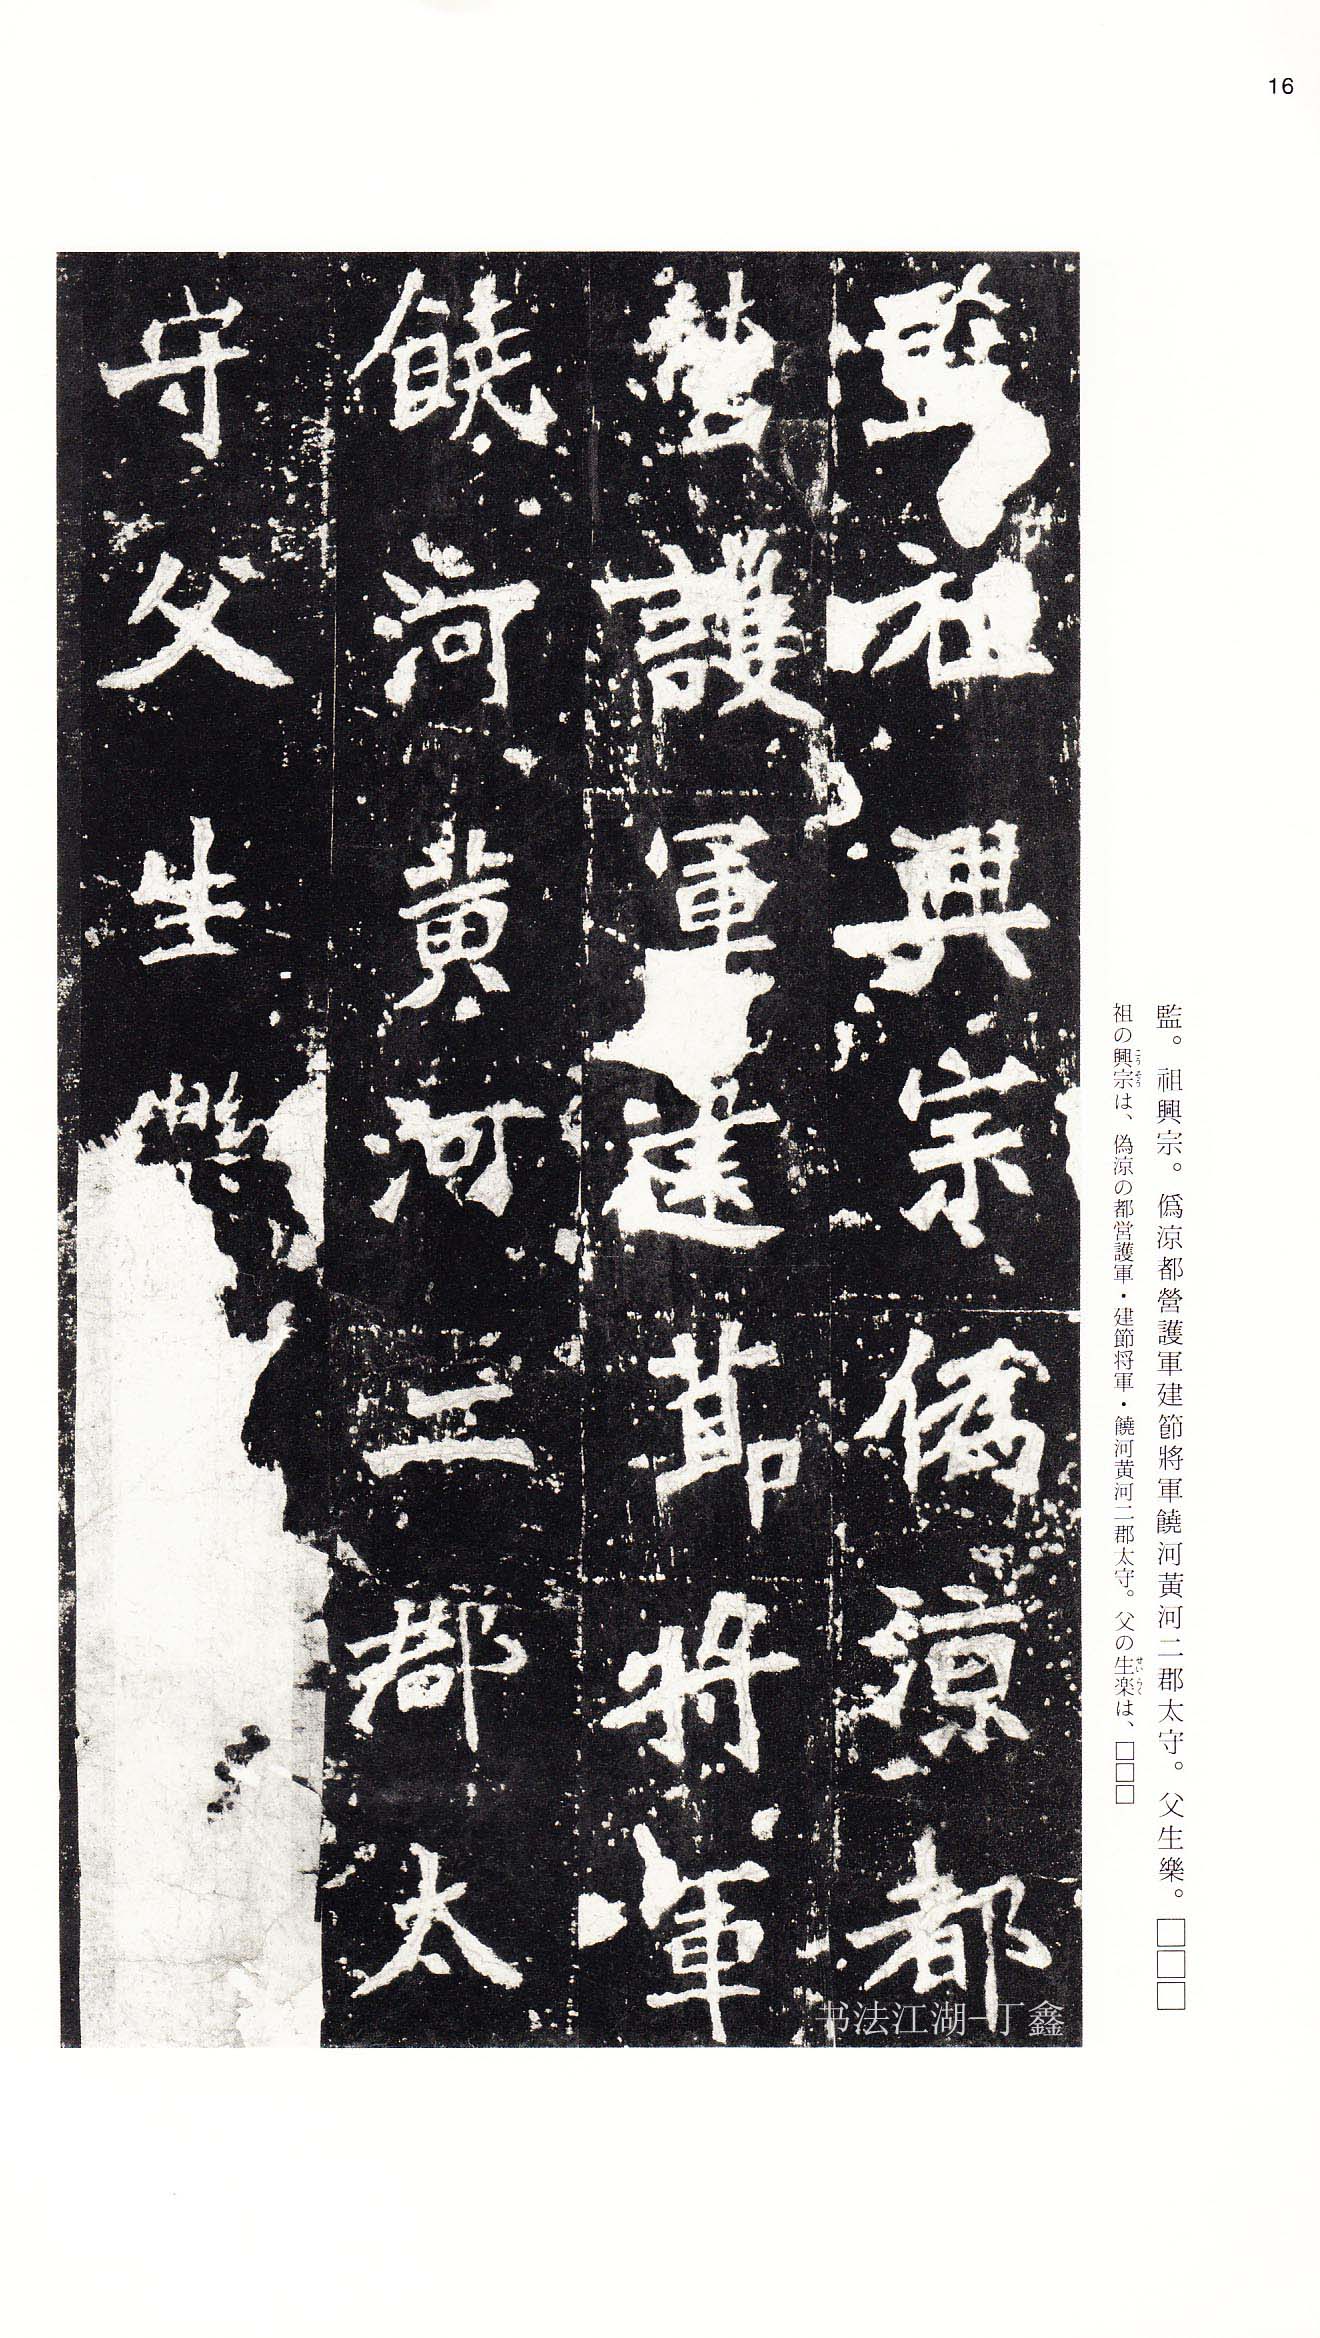 16
監。祖興宗。僞涼都營護軍建節將軍饒河黃河二郡太守。父生樂。□□□
祖の興宗は、偽涼の都営護軍・建節将軍・饒河黄河二郡太守。父の生楽は、□□□
こうそう
せいらく
監祖興宗僞涼都
營護軍建節將軍
饒河黃河二郡太
守父生樂
书法江湖-丁鑫